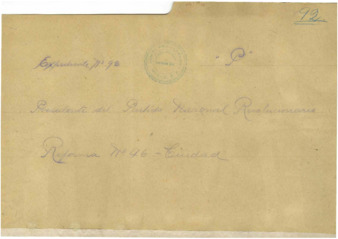 92
Expediente Nº 92
"P"
Presidente del Partido Nacional Revolucionario
Reforma Nº 46 - Ciudad